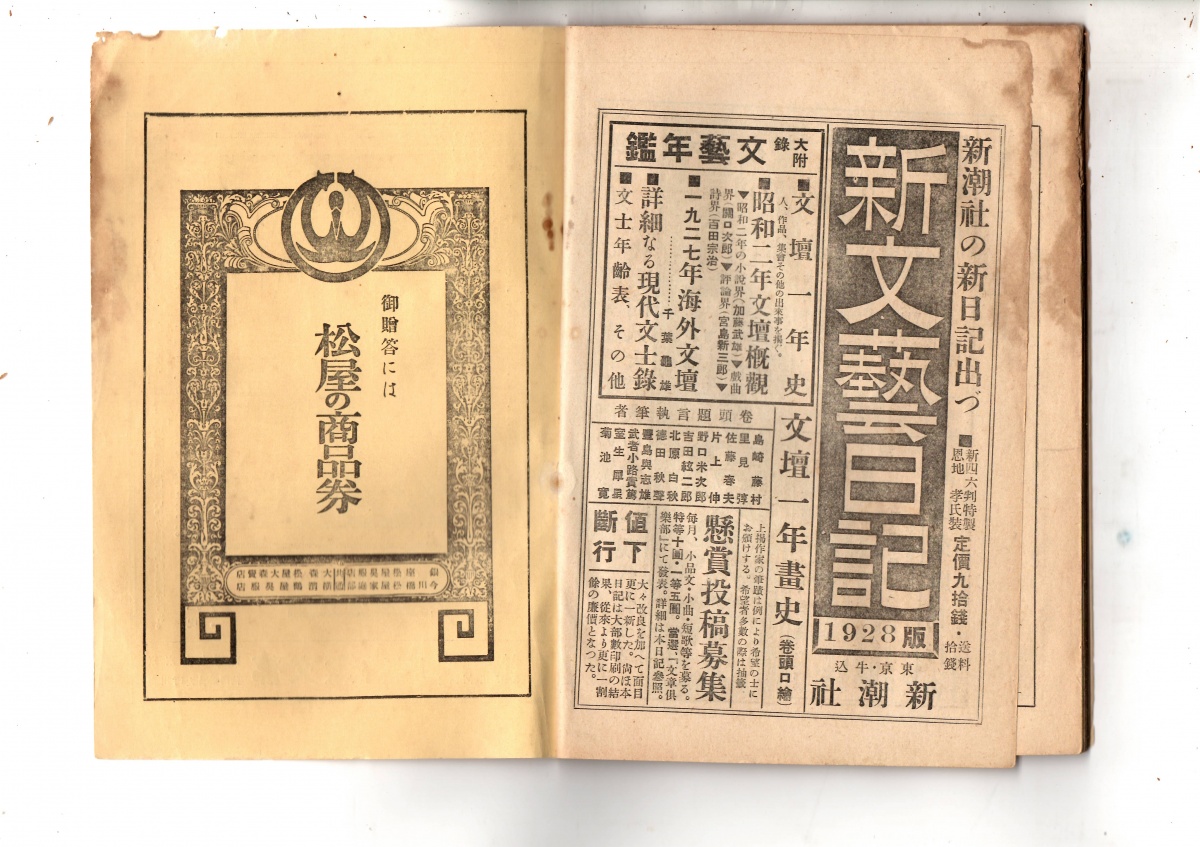 新潮社の新日記出づ
■新四六判特製
恩地孝氏裝
定價九拾錢・
送料
拾錢
新文藝日記
1928版
東京・牛込
新潮社
大附
錄
文藝年鑑
■文壇一年史
人、作品、集會その他の出來事を揭ぐ。
■昭和二年文壇槪觀
▼昭和二年の小說界(加藤武雄)▼戲曲
界(關口次郎)▼評論界(宮島新三郎)▼
詩界(百田宗治)
■一九二七年海外文壇
千葉龜雄
■詳細なる現代文士錄
■文士年齡表、その他
文壇一年畫史(卷頭口繪)
卷頭題言執筆者
島崎藤村
里見弴
佐藤春夫
片上伸
野口米次郎
吉田絃二郎
北原白秋
德田秋聲
豐島與志雄
武者小路實篤
室生犀星
菊池寬
上揭作家の筆蹟は例により希望の士に
お頒けする。希望者多數の際は抽籤
懸賞投稿募集
每月、小品文・小曲・短歌等を募る。
特等十圓・一等五圓。當選、「文章俱
樂部」にて發表。詳細は本日記參照。
値下
斷行
大々改良を加へて面目
更に一新した。尙ほ本
日記は大部數印刷の結
果、從來より更に一割
餘の廉價となつた。
御贈答には
松屋の商品券